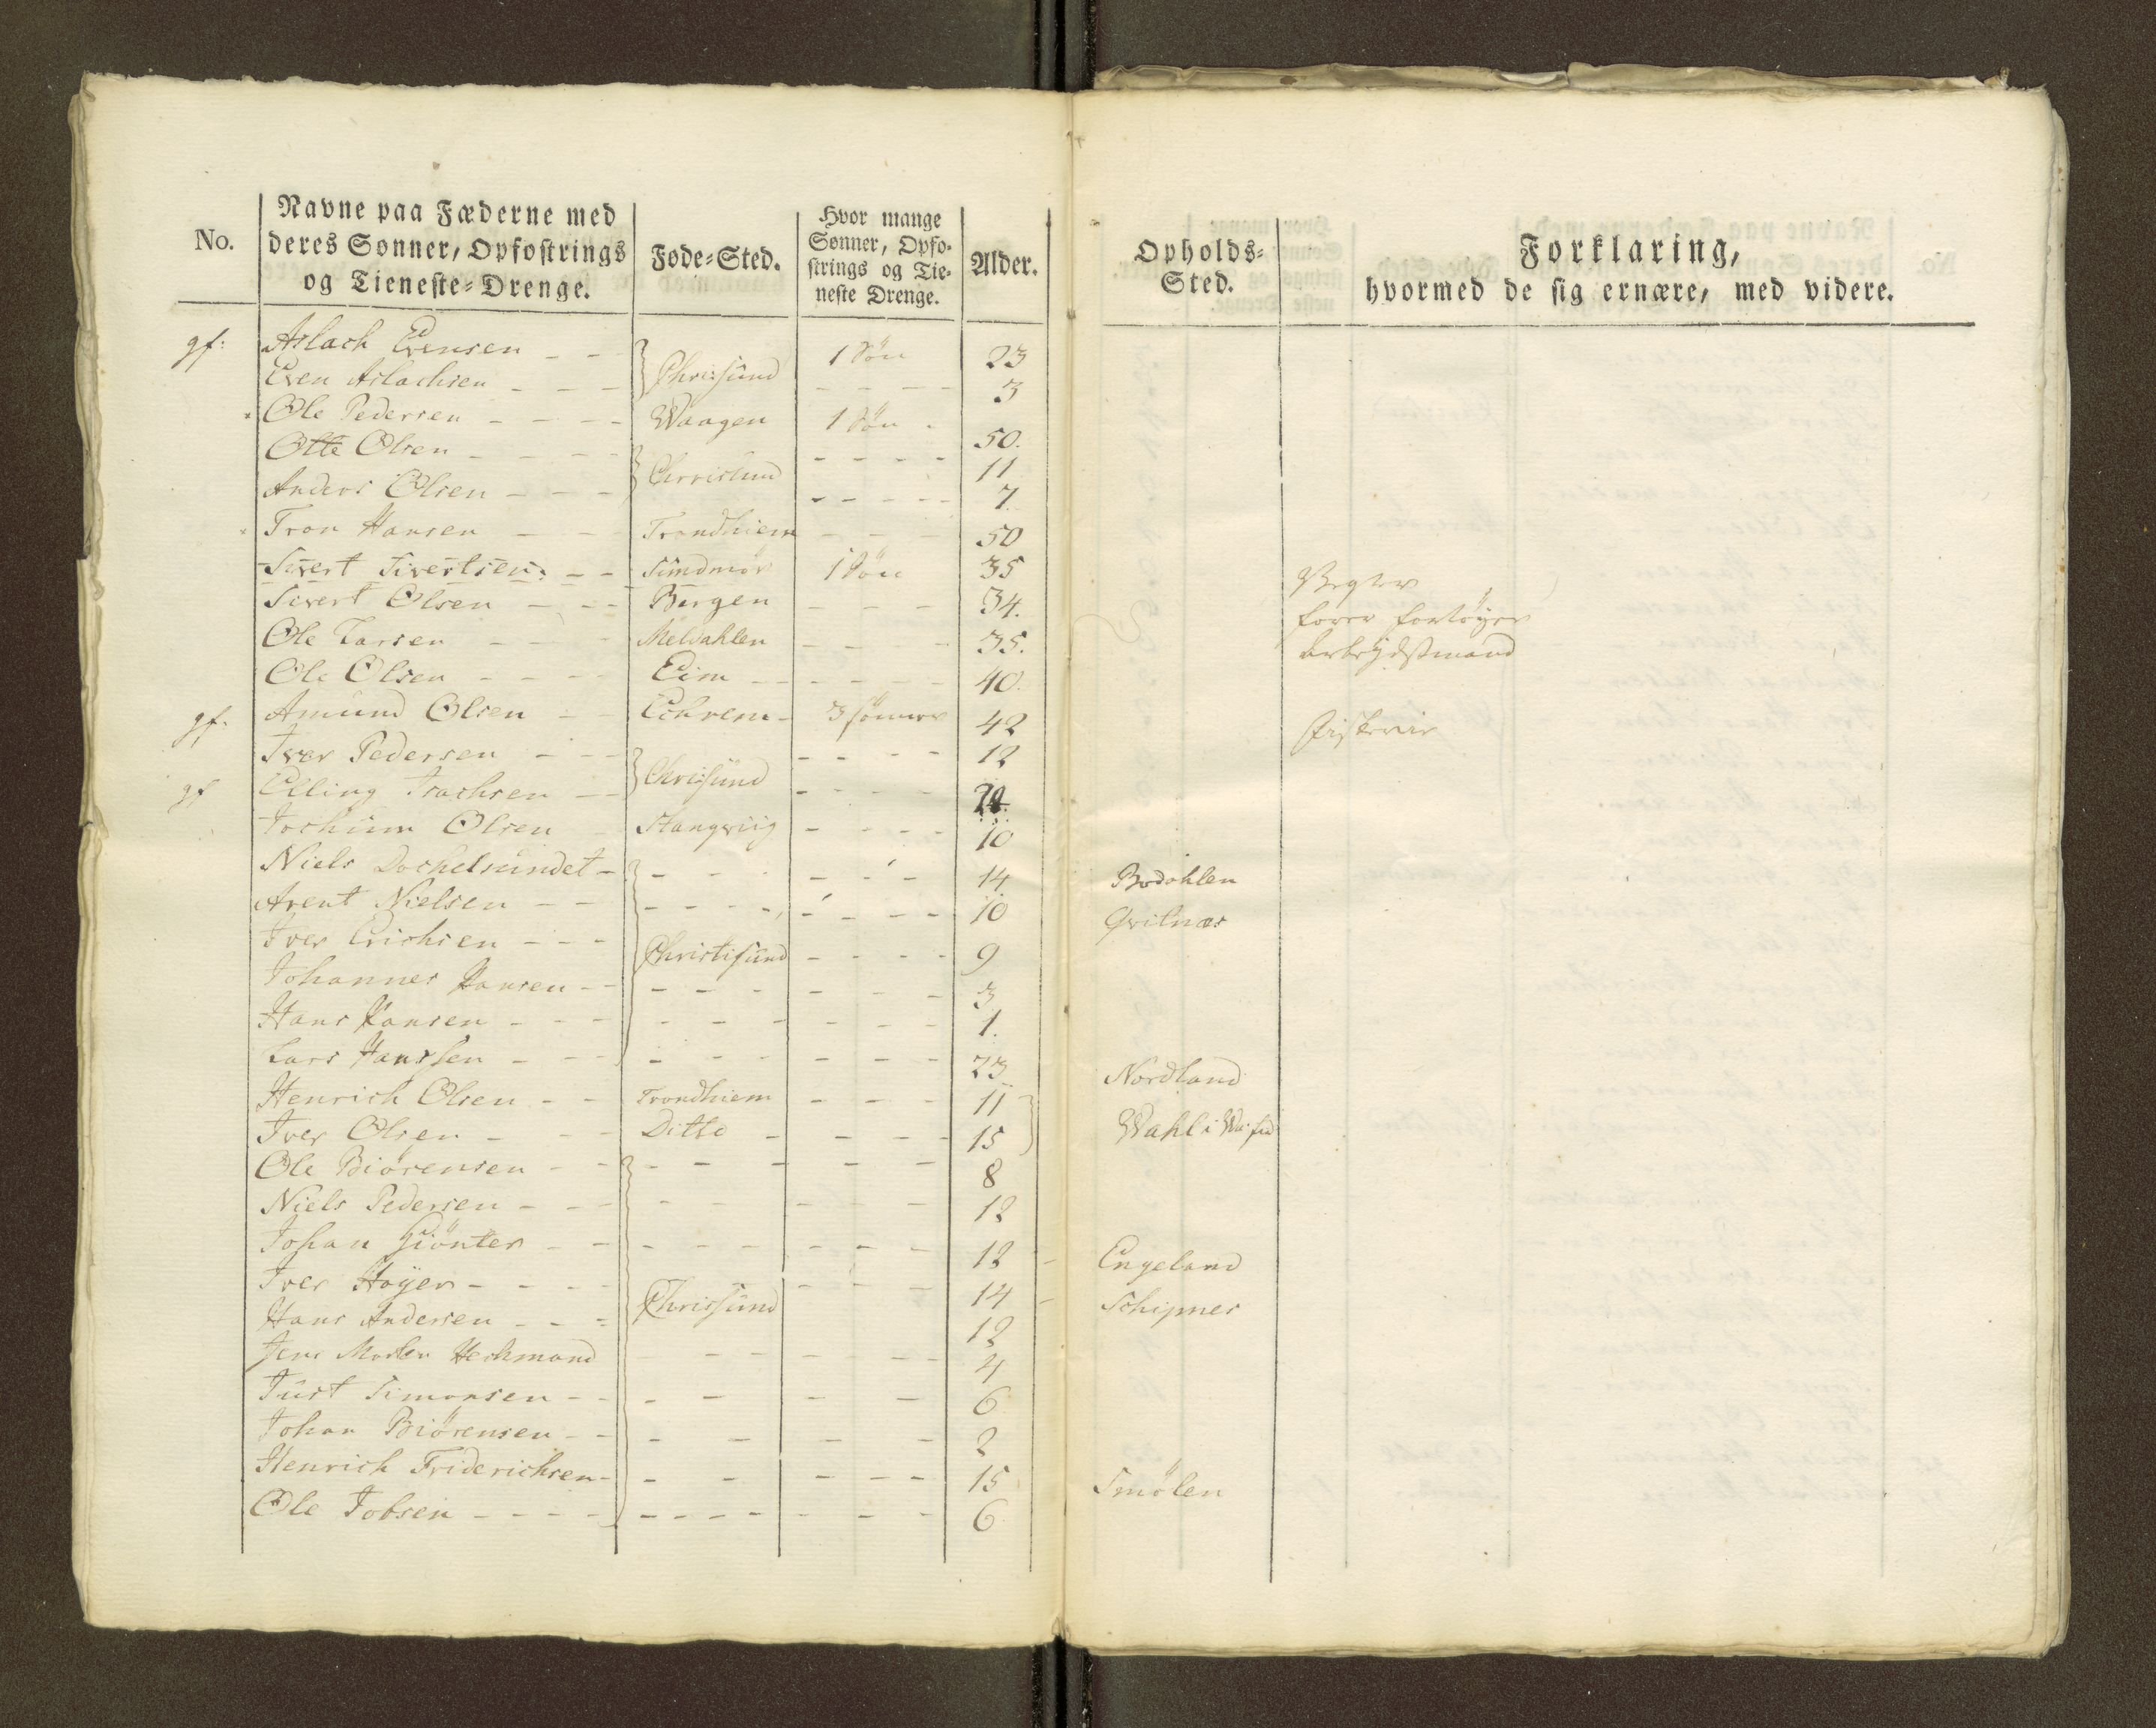 No. Navne paa Fæderne med deres Sønner, Opfostrings og Tieneste-Drenge. Føde-Sted. Hvor mange Sønner, Opfostrings og Tieneste Drenge. Alder. Opholds-Sted. Forklaring, hvormed de sig ernære, med videre.
gf: Aslach Evensen - - Chrissund 1 Søn 23
Even Aslachsen - - - - - - - 3
Ole Pedersen - - - - Waagen 1 Søn 50.
Otte Olsen - - - - Christsund - - - - 11
Anders Olsen - - - - - - - - 7.
Tron Hansen - - Trondhiem - - - 50
Sivert Sivertsen - - Sundmør 1 Søn 35
Sivert Olsen - - - Bergen - - - 34.
Ole Larsen - - - Meldahlen - - - - 35. arbeydsmand
Ole Olsen - - - - Eim - - - - - 40.
gf: Amund Olsen - - Eckrem - 3 sønner 42 Fiskerie
Iver Pedersen - - - Chrissund - - - - 12
gf Elling Isachsen - - - - - -
Jochum Olsen Stangviig - - - - 10
Niels Dochelsundet - - - - - - - 14 Bodahlen
Arent Nielsen - - - - - - - - - - 10 Qvilnæs
Iver Erichsen - - - Christisund - - - - 9
Johannes Hansen - - - - - - - - - 3
Hans Hansen - - - - - - - - - - 1.
Lars Hanssen - - - - - - - - - 23 Nordland
Henrich Olsen - - Trondhiem - - - 11
Iver Olsen - - - Ditto - - - - 15 Wahl i
Ole Biörensen - - - - - - - 8
Niels Pedersen - - - - - - - - - 12
Johan Giönter - - - - - - - - - - 12 - Engeland
Iver Høyer - - - - - - - 14 - Schipnes
Hans Andersen - - - Chrissund 12
Jens Hechmand - - - - - - 4
Just Simonsen - - - - - - 6
Johan Biörensen - - - - - - 2
Henrich Friderichsen - - - - - - 15 Smølen
Ole Jobsen - - - - - - - - - - - 6